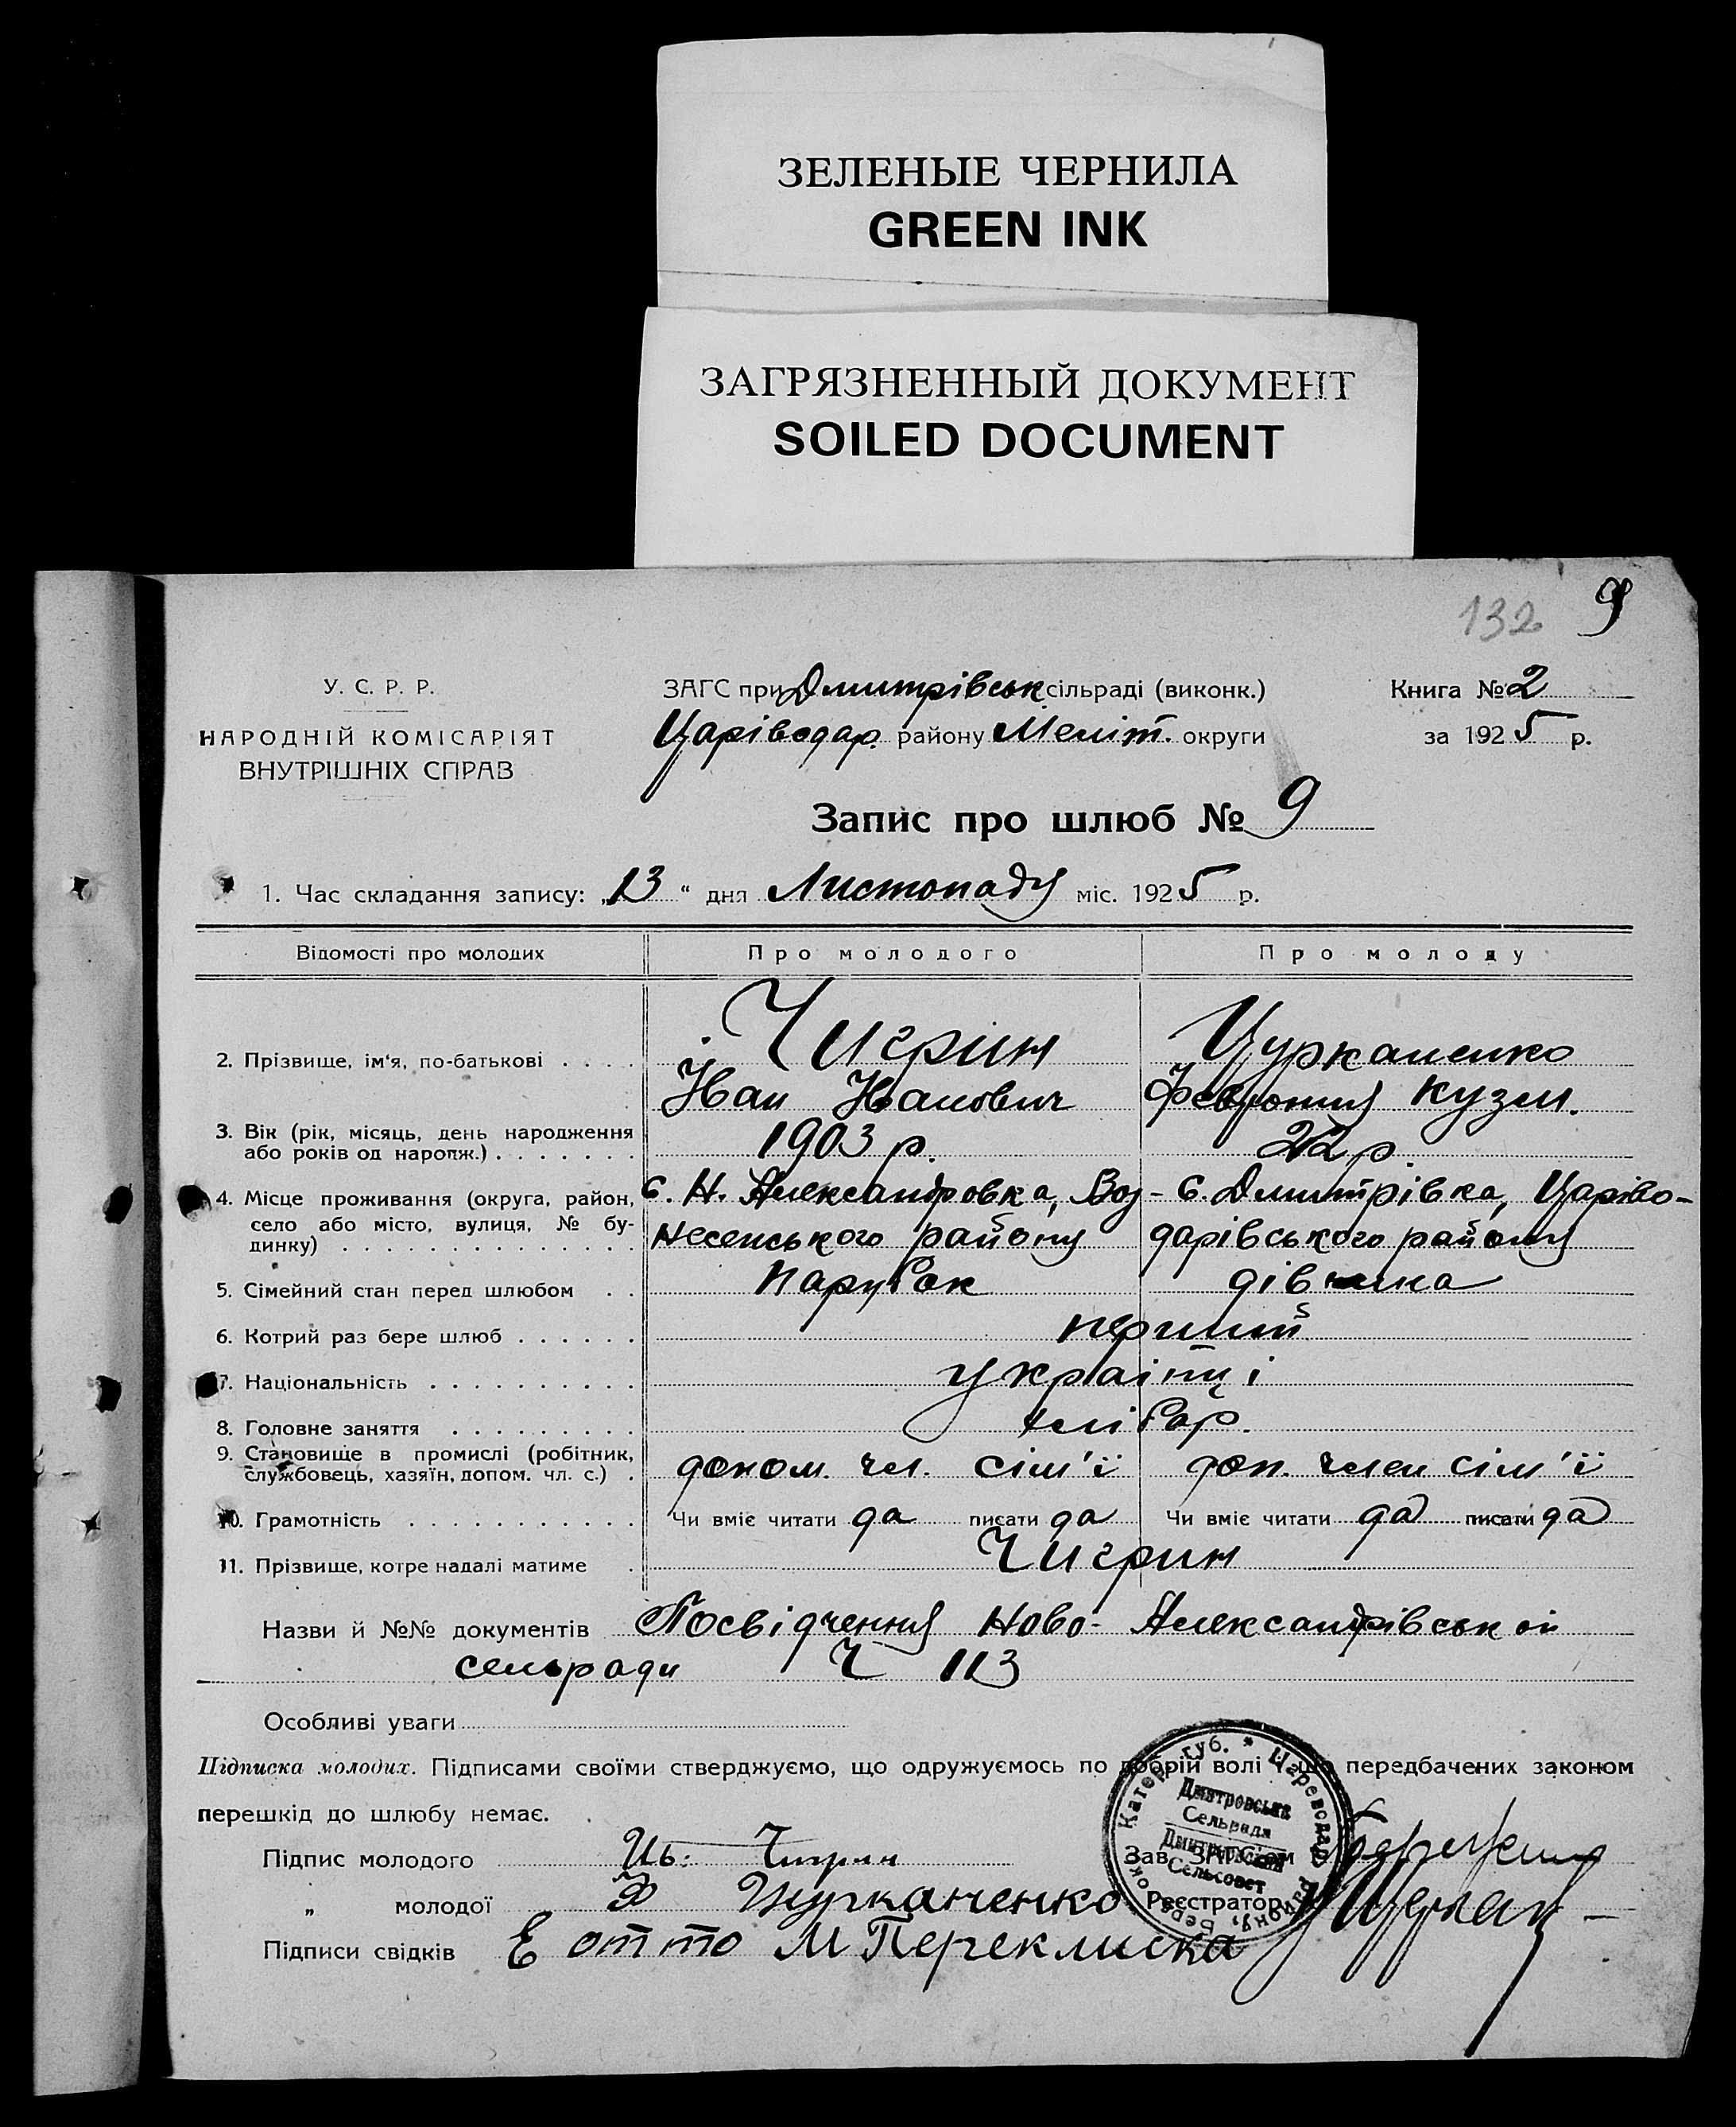 ЗЕЛЕНЫЕ ЧЕРНИЛА
GREEN INK
ЗАГРЯЗНЕННЫЙ ДОКУМЕНТ
SOILED DOCUMENT
132 9
У. С. Р. Р.
НАРОДНІЙ КОМІСАРІЯТ
ВНУТРІШНІХ СПРАВ
ЗАГС при Дмитрівськ сільраді (виконк.)
Царіводар. району Меліт. округи
Книга № 2
за 1925 р.
Запис про шлюб № 9
1. Час складання запису: „13“ дня Листопаду міс. 1925 р.
Відомості про молодих Про молодого Про молоду
2. Прізвище, ім'я, по-батькові . . . . Чигрин Цурканенко
Іван Іванович Февронія Кузм.
3. Вік (рік, місяць, день народження
або років од народж.) . . . . . . . 1903 р. 22 р.
4. Місце проживання (округа, район, с. Н. Александровка, Воз- с. Дмитрівка, Царіво-
село або місто, вулиця, № бу- несенського району дарівського району
динку) . . . . . . . . . . . . . .
5. Сімейний стан перед шлюбом . . парубок дівчина
6. Котрий раз бере шлюб . . . . . . перший
7. Національність . . . . . . . . . . українці
8. Головне заняття . . . . . . . . . хлібар.
9. Становище в промислі (робітник,
службовець, хазяїн, допом. чл. с.) . допом. чл. сім'ї доп. член сім'ї
10. Грамотність . . . . . . . . . . . Чи вміє читати да писати да Чи вміє читати да писати да
11. Прізвище, котре надалі матиме . Чигрин
Назви й №№ документів Посвідчення Ново-Александрівськой
сельради Ч 113
Особливі уваги
Підписка молодих. Підписами своїми стверджуємо, що одружуємось по добрій волі і що передбачених законом
перешкід до шлюбу немає.
Підпис молодого Ив. Чигрин
„ молодої Ф Цурканенко
Підписи свідків Е отто М Переклиска
Зав. ЗАГС'ом
Реєстратор
Катер. губ. * Царевсдар
Дмитровська
Сельрада
Дмитровский
Сельсовет